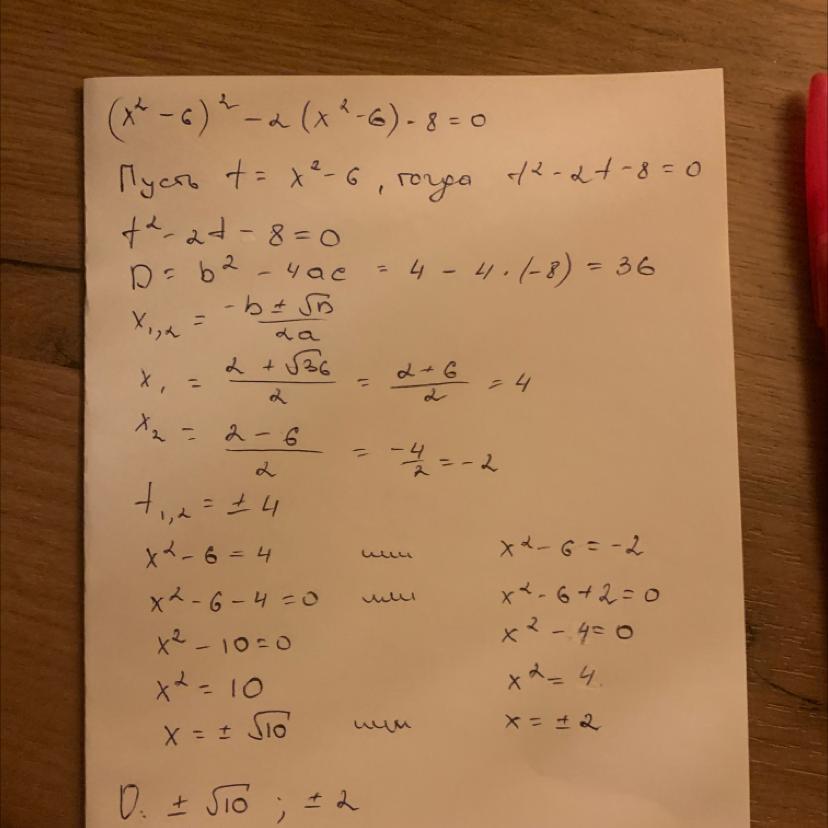 (x² - 6)² - 2(x² - 6) - 8 = 0
Пусть t = x² - 6, тогда t² - 2t - 8 = 0
t² - 2t - 8 = 0
D = b² - 4ac = 4 - 4 · (-8) = 36
x₁,₂ = (-b ± √D)/(2a)
x₁ = (2 + √36)/2 = (2 + 6)/2 = 4
x₂ = (2 - 6)/2 = -4/2 = -2
t₁,₂ = ± 4
x² - 6 = 4 или x² - 6 = -2
x² - 6 - 4 = 0 или x² - 6 + 2 = 0
x² - 10 = 0 x² - 4 = 0
x² = 10 x² = 4
x = ± √10 или x = ± 2
O: ± √10 ; ± 2